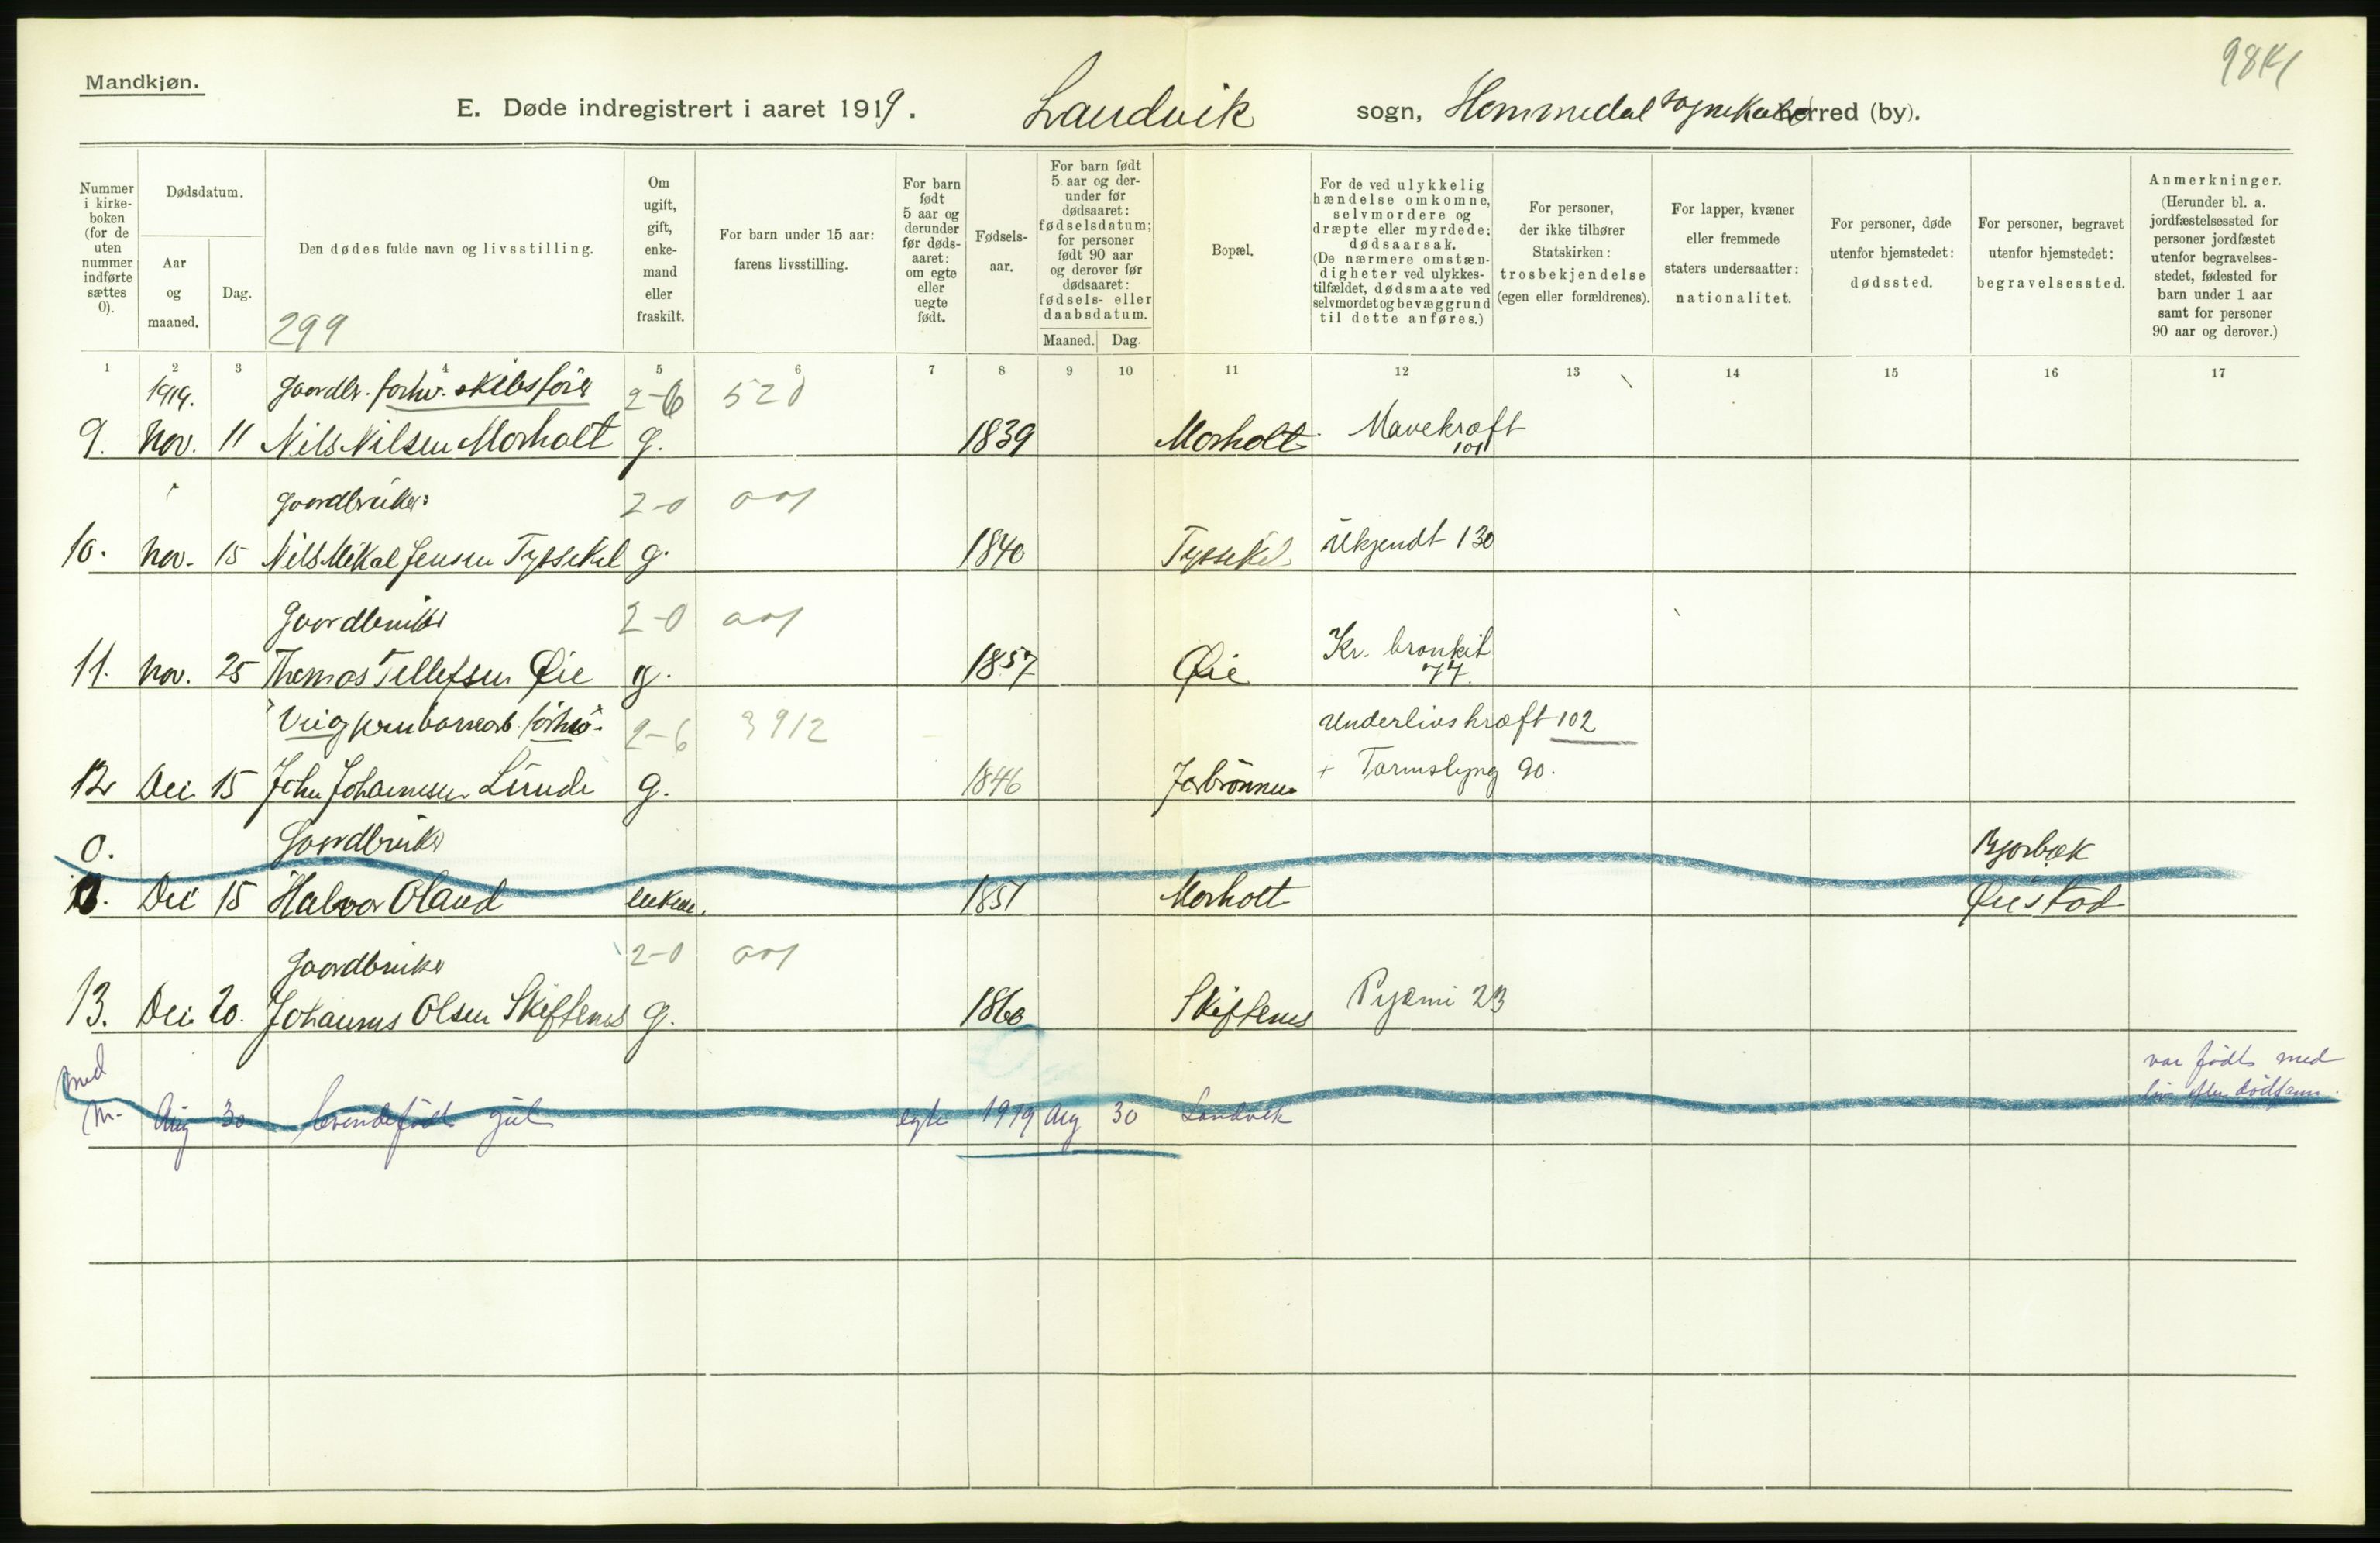 Mandkjøn.
E. Døde indregistrert i aaret 1919. Landvik sogn, Hommedal sognekald herred (by).
Nummer i kirke-boken (for de uten nummer indførte sættes 0).
Dødsdatum.
Aar og maaned.
Dag.
Den dødes fulde navn og livsstilling.
299
Om ugift, gift, enke-mand eller fraskilt.
For barn under 15 aar: farens livsstilling.
For barn født 5 aar og derunder før døds-aaret: om egte eller uegte født.
Fødsels-aar.
For barn født 5 aar og der-under før dødsaaret: fødselsdatum; for personer født 90 aar og derover før dødsaaret: fødsels- eller daabsdatum.
Maaned. Dag.
Bopæl.
For de ved ulykkelig hændelse omkomne, selvmordere og dræpte eller myrdede: dødsaarsak. (De nærmere omstæn-digheter ved ulykkes-tilfældet, dødsmaate ved selvmordet og bevæggrund til dette anføres.)
For personer, der ikke tilhører Statskirken: trosbekjendelse (egen eller forældrenes).
For lapper, kvæner eller fremmede staters undersaatter: nationalitet.
For personer, døde utenfor hjemstedet: dødssted.
For personer, begravet utenfor hjemstedet: begravelsessted.
Anmerkninger. (Herunder bl. a. jordfæstelsessted for personer jordfæstet utenfor begravelses-stedet, fødested for barn under 1 aar samt for personer 90 aar og derover.)
1 2 3 4 5 6 7 8 9 10 11 12 13 14 15 16 17
1919. Gaardbr. forhv. skibsfører 2-6 520
9. Nov. 11 Nils Nilsen Morholt g. 1839 Morholt Mavekræft
101
Gaardbruker 2-0 001
10. Nov. 15 Nils Mikal Jensen Tyssekil g. 1840 Tyssekil Ukjendt 130
Gaardbruker 2-0 001
11. Nov. 25 Thomas Tellefsen Øie g. 1857 Øie Kr. bronkit
77.
forhv. 2-6 3912 Underlivskræft 102
12 Dec 15 John Johannesen Lunde g. 1846 + Tarmslyng 90.
0. Gaardbruker Bjorbæk
Dec 15 Halvor Oland enkem. 1851 Morholt Øiestad
Gaardbruker 2-0 001
13. Dec 20. Johannes Olsen Skiftenes g. 1860 Skiftenes Pyæmi 23
med var født med
m. Aug 30 levendefødt gut egte 1919 Aug 30 Landvik liv efter